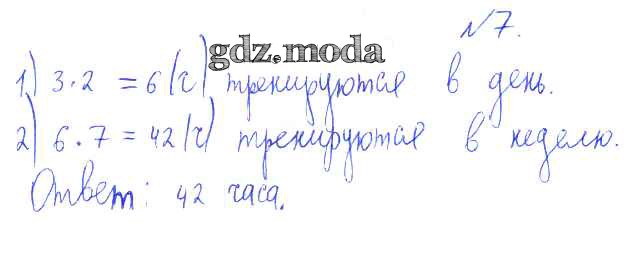 №7.
gdz.moda
1) 3·2 = 6 (ч) тренируются в день.
2) 6·7 = 42 (ч) тренируются в неделю.
Ответ: 42 часа.